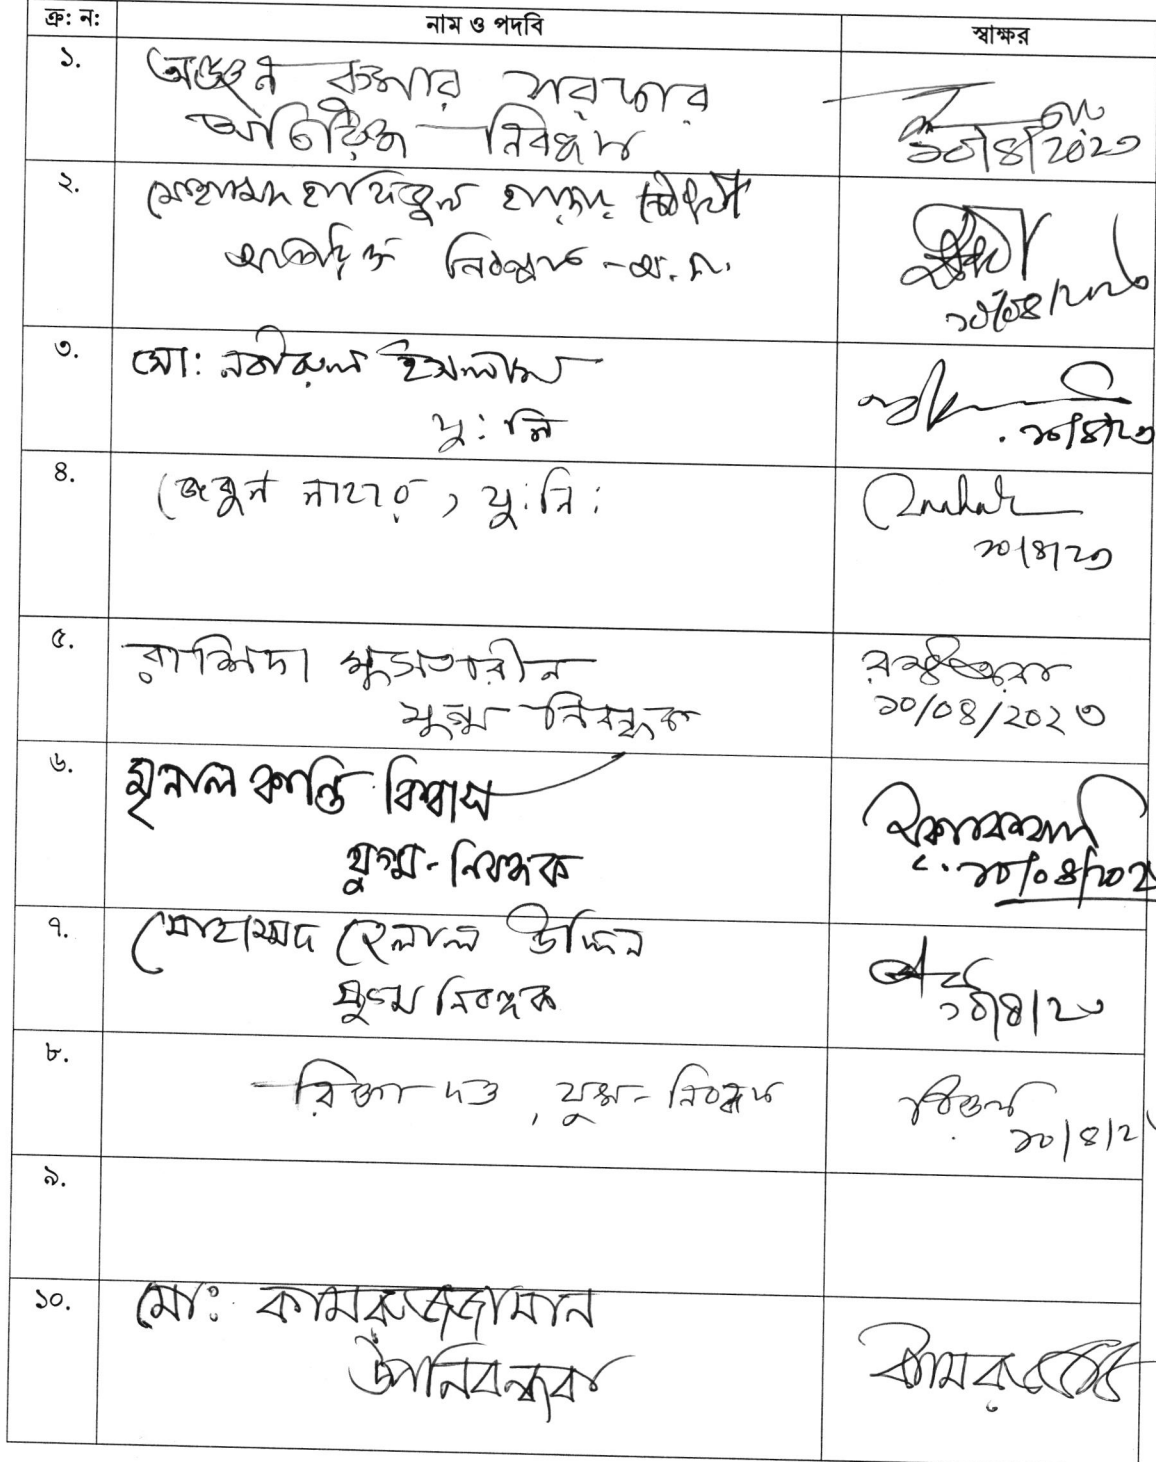 ক্র: ন: নাম ও পদবি স্বাক্ষর
১.
কুমার সরদার
অতিরিক্ত নিবন্ধক
১০/৪/২০২৩
২.
মোহাম্মদ হাফিজুল হায়দার চৌধুরী
অতিরিক্ত নিবন্ধক
১০/০৪/২০২৩
৩.
মো: নবীরুল ইসলাম
যু: নি
১০/৪/২৩
৪.
জেবুন নাহার, যু: নি:
১০/৪/২৩
৫.
রাশিদা মুসতারীন
যুগ্ম নিবন্ধক
১০/০৪/২০২৩
৬.
মৃনাল কান্তি বিশ্বাস
যুগ্ম-নিবন্ধক
১০/০৪/২০২
৭.
মোহাম্মদ হেলাল উদ্দিন
যুগ্ম নিবন্ধক
১০/৪/২৩
৮.
রিক্তা দত্ত, যুগ্ম-নিবন্ধক
১০/৪/২
৯.
১০.
মো: কামরুজ্জামান
উপনিবন্ধক